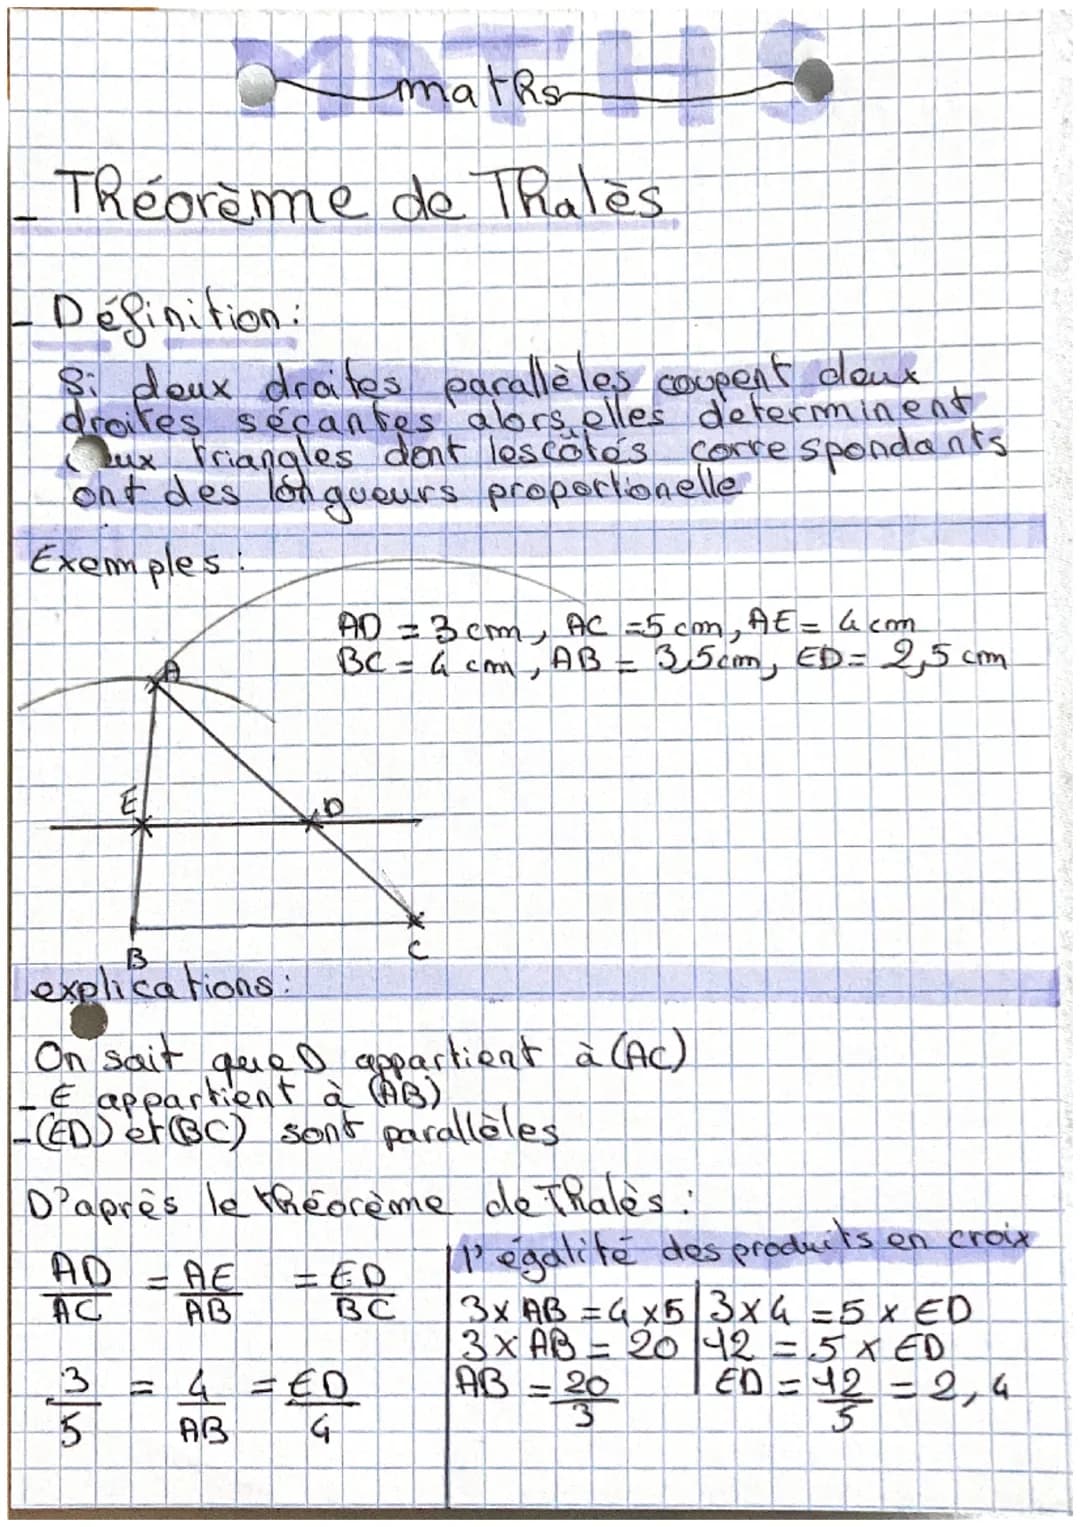 MATHS
maths
- Théorème de Thalès
- Définition:
Si deux droites parallèles coupent deux
droites sécantes alors, elles determinent
deux triangles dont lescôtés correspondants
ont des longueurs proportionelle
Exemples:
AD = 3 cm, AC =5 cm, AE= 4 cm
BC = 4 cm, AB = 3,5cm, ED= 2,5 cm
A
E
D
B
C
explications:
On sait que D appartient à (AC)
- E appartient à (AB)
- (ED) et (BC) sont parallèles
D'après le théorème de Thalès:
l'égalité des produits en croix
AD/AC = AE/AB = ED/BC
3/5 = 4/AB = ED/4
3 x AB = 4 x 5
3 x AB = 20
AB = 20/3
3 x 4 = 5 x ED
12 = 5 x ED
ED = 12/5 = 2,4